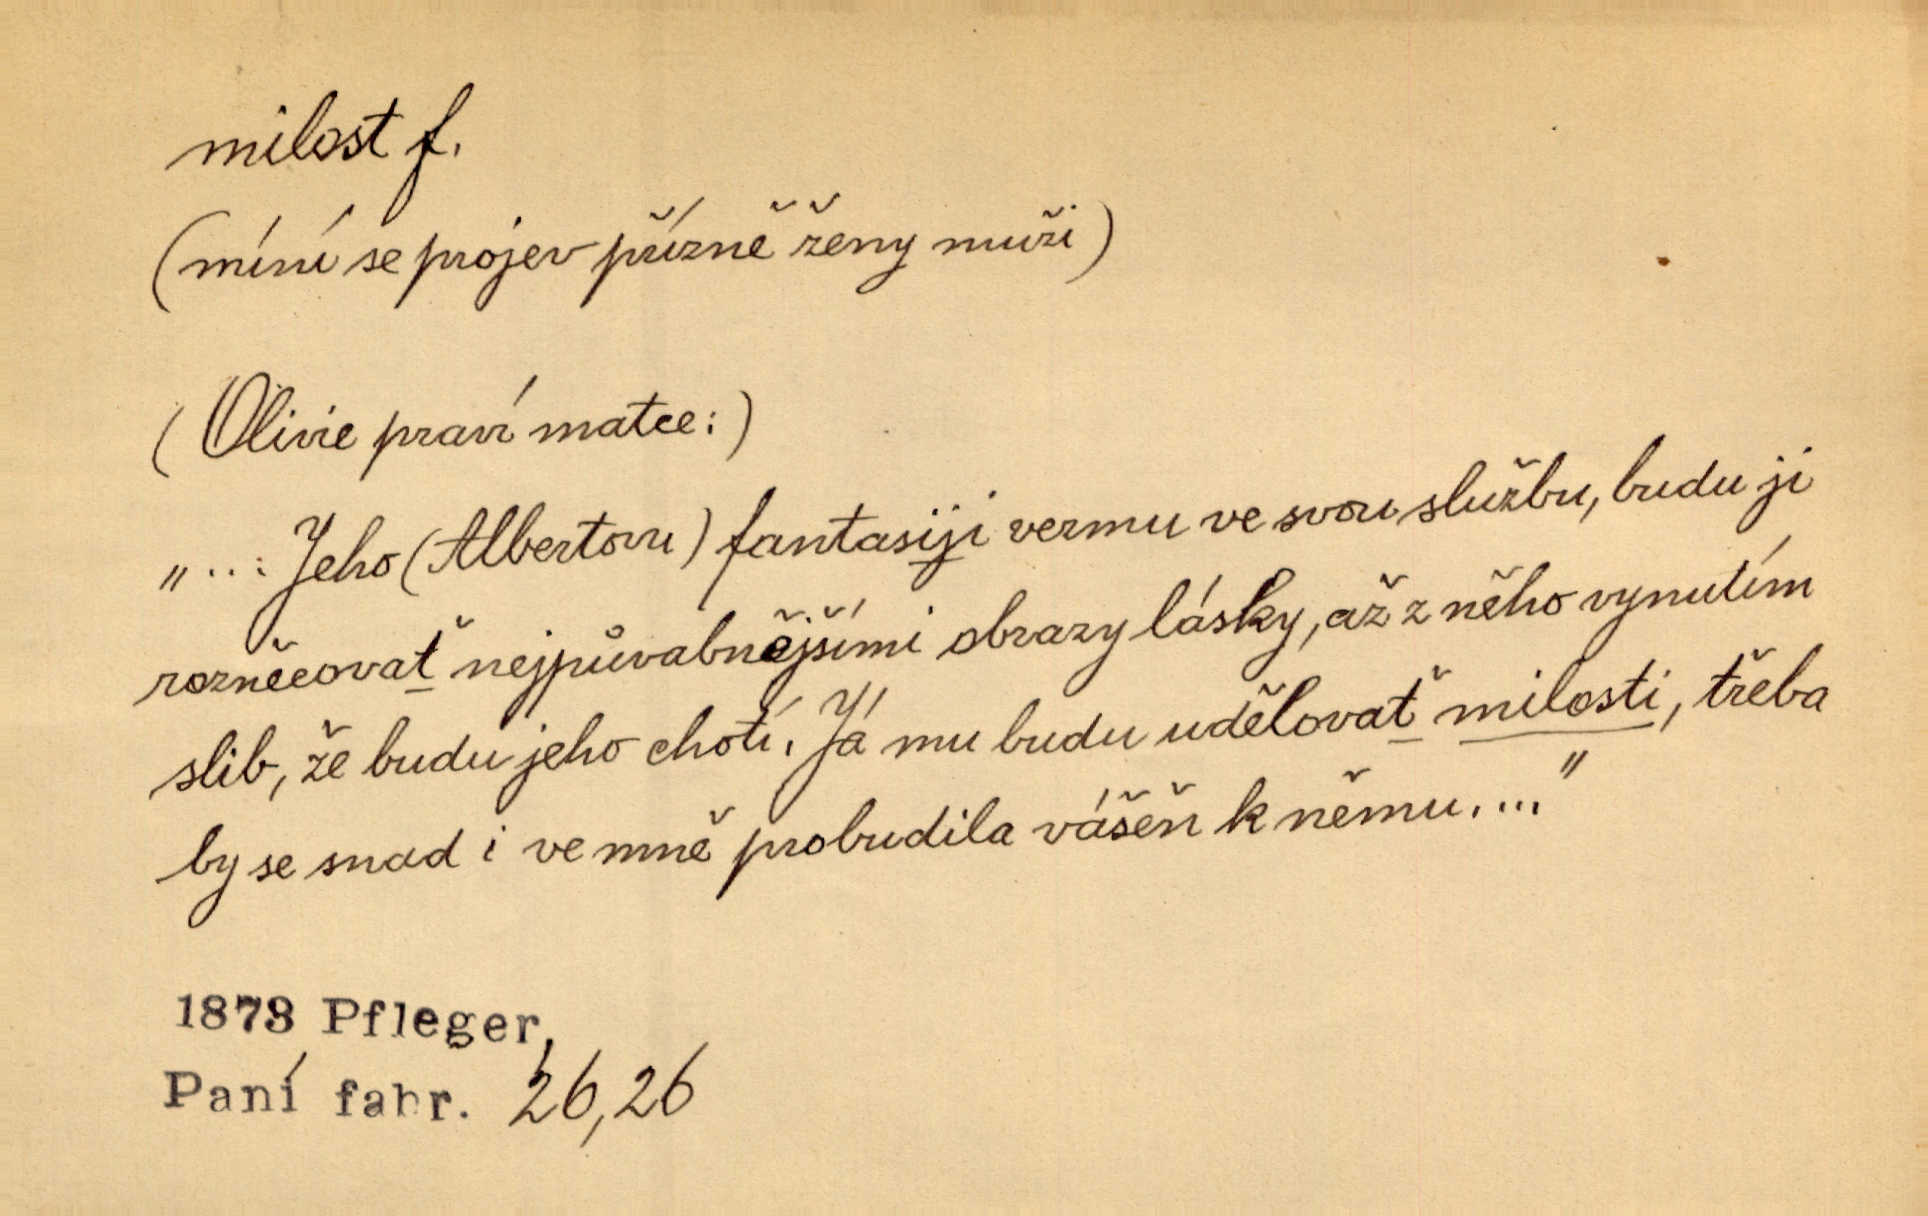 milost f.
(míní se projev přízně ženy muži)
(Olivie praví matce:)
„... Jeho (Albertovu) fantasiji vezmu ve svou službu, budu ji
rozněcovať nejpůvabnějšími obrazy lásky, až z něho vynutím
slib, že budu jeho chotí. Já mu budu udělovať milosti, třeba
by se snad i ve mně probudila vášeň k němu. ..."
1873 Pfleger,
Paní fabr. 26,26